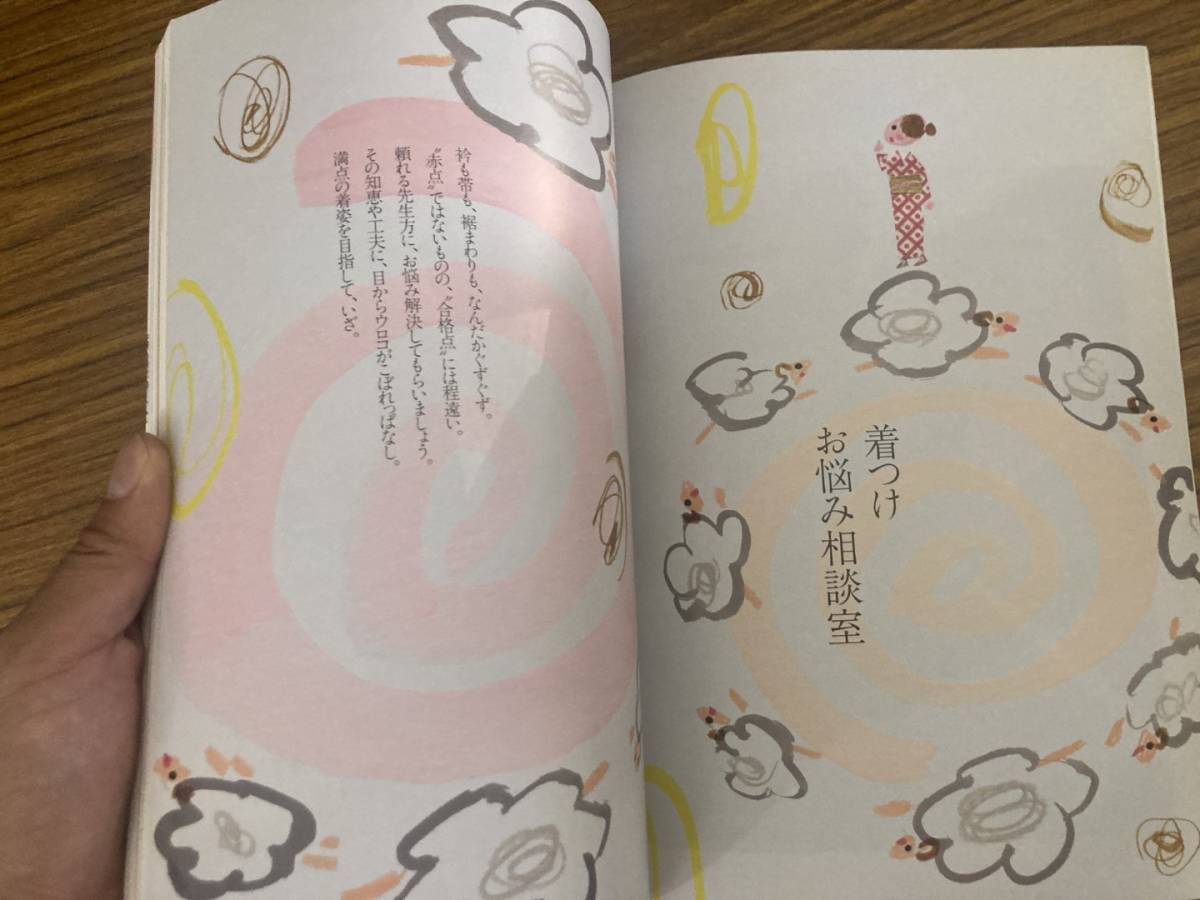 着つけ
お悩み相談室
衿も帯も、裾まわりも、なんだかぐずぐず。
“赤点”ではないものの、“合格点”には程遠い。
頼れる先生方に、お悩み解決してもらいましょう。
その知恵や工夫に、目からウロコがこぼれっぱなし。
満点の着姿を目指して、いざ。